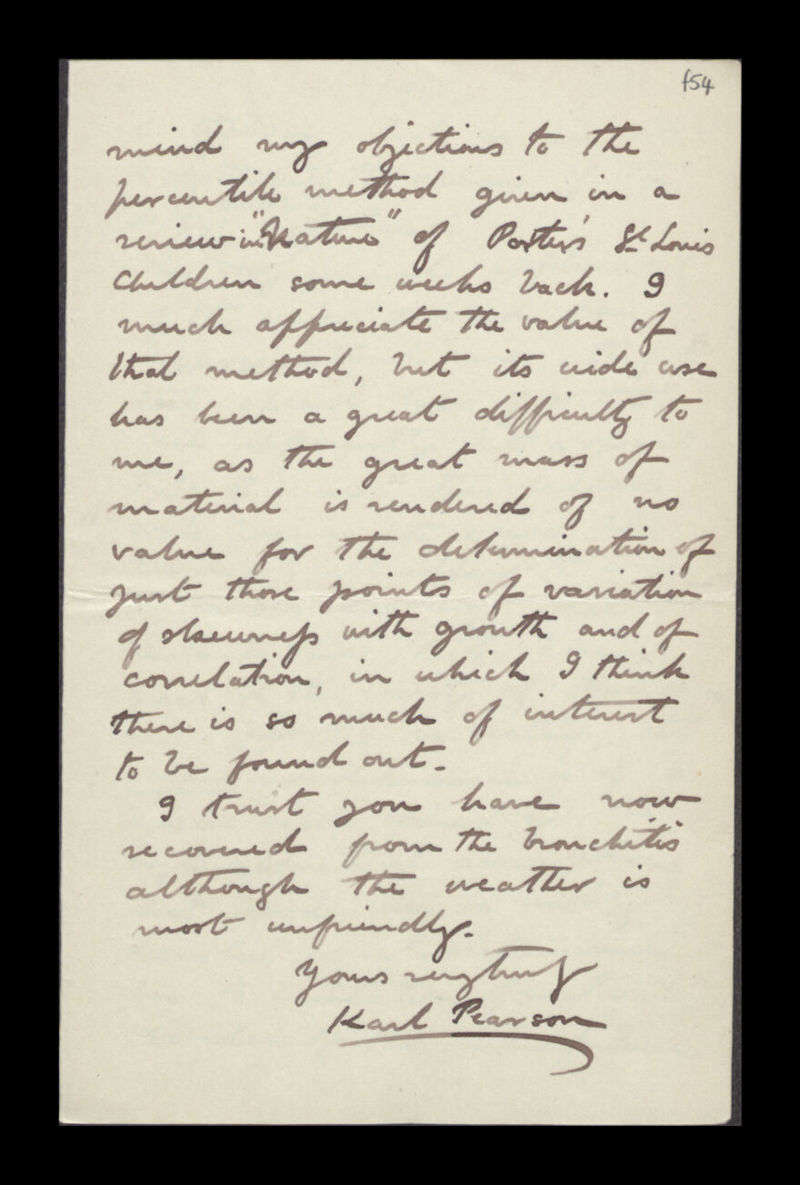 f54
mind my objections to the
percentile method given in a
review in "Nature" of Porter's St Louis
Children some weeks back. I
much appreciate the value of
that method, but its wide use
has been a great difficulty to
me, as the great mass of
material is rendered of no
value for the determination of
just those points of variation
of skewness with growth and of
correlation, in which I think
there is so much of interest
to be found out.
I trust you have now
recovered from the bronchitis
although the weather is
most unfriendly.
Yours very truly
Karl Pearson